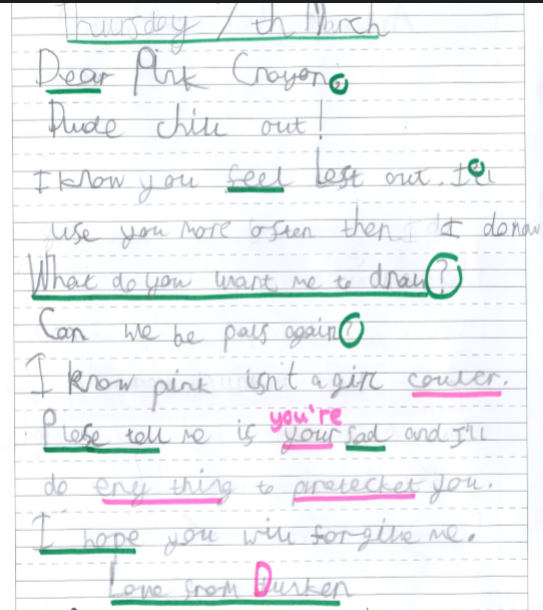 Thursday 7th March
Dear Pink Crayon,
Dude chill out!
I know you feel left out. I'll
use you more often then I do now
What do you want me to draw?
Can we be pals again?
I know pink isn't a girl couler.
you're
Plese tell me if your sad and I'll
do eny thing to pretecket you.
I hope you will forgive me.
Love from Dunken